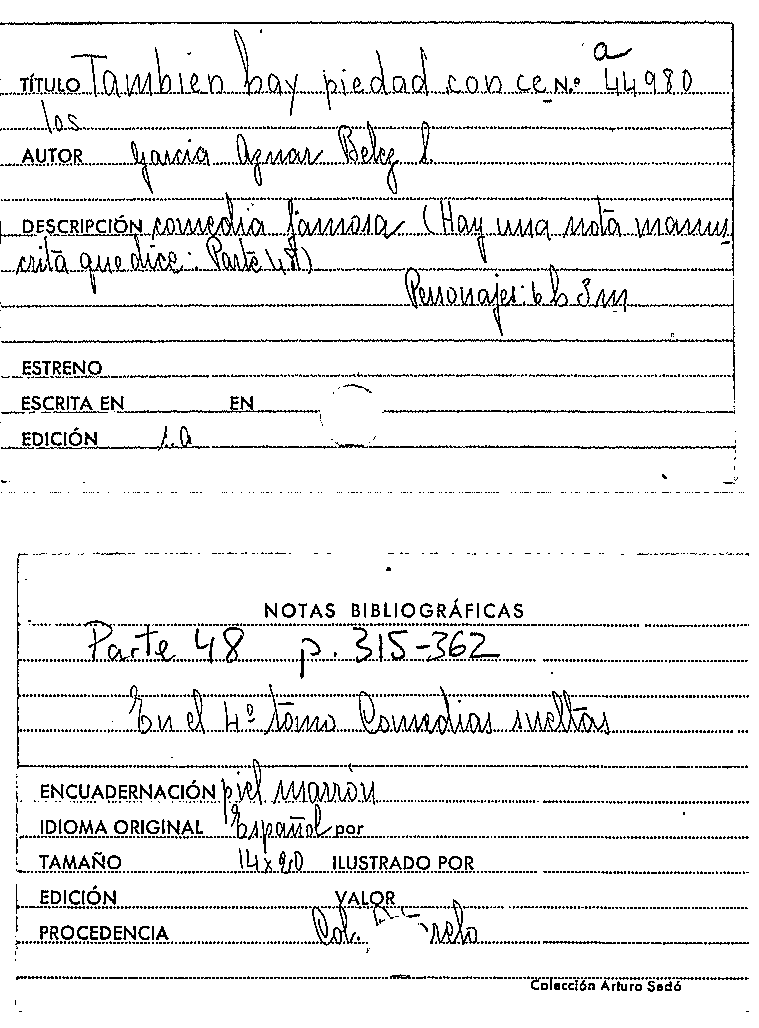 a
TÍTULO Tambien hay piedad con ce N.º 44980
los
AUTOR Garcia Aznar Belez l
DESCRIPCIÓN comedia famosa (Hay una nota manus
crita que dice: Parte 48)
Personajes: 6 h 3 m
ESTRENO
ESCRITA EN EN
EDICIÓN 1.a
NOTAS BIBLIOGRÁFICAS
Parte 48 p. 315-362
En el 4º tomo Comedias sueltas
ENCUADERNACIÓN piel marrón
IDIOMA ORIGINAL Español por
TAMAÑO 14x20 ILUSTRADO POR
EDICIÓN VALOR
PROCEDENCIA Col.
Colección Arturo Sedó